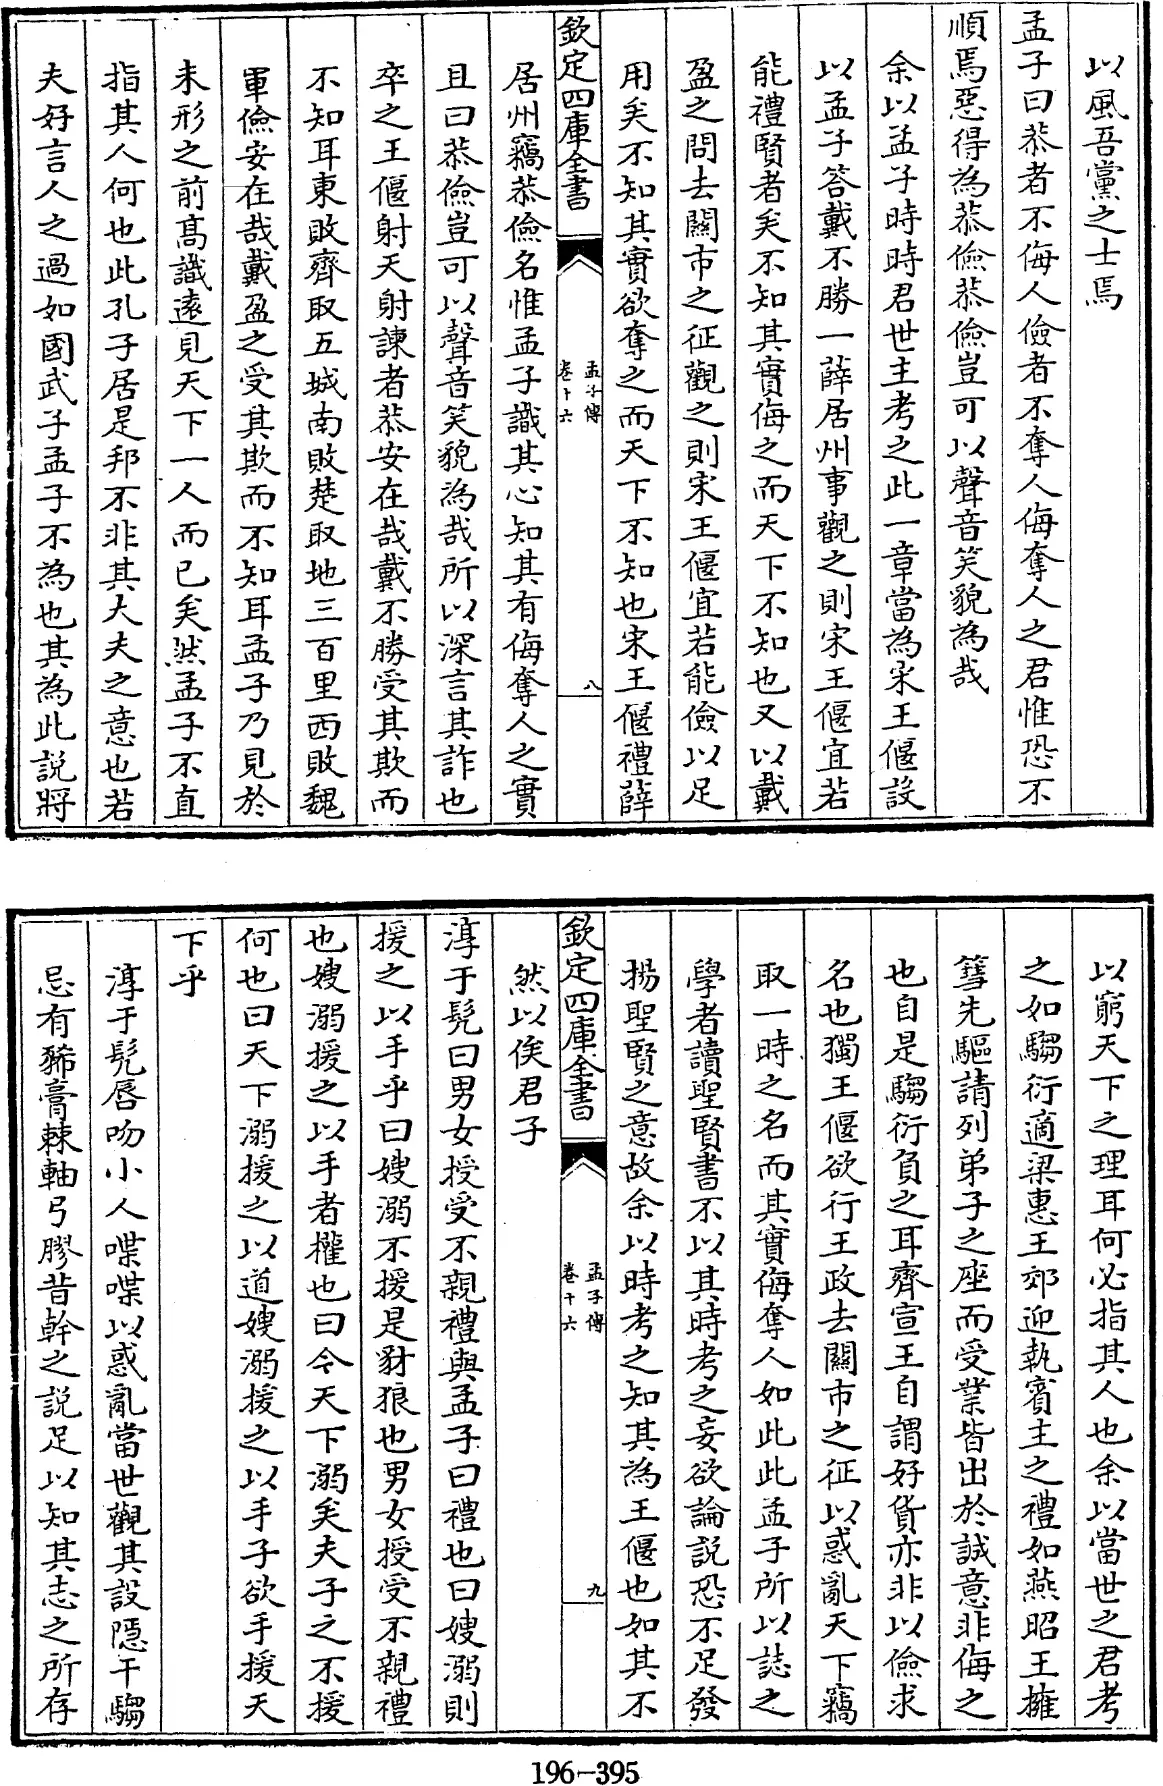 以風吾黨之士焉
孟子曰恭者不侮人儉者不奪人侮奪人之君惟恐不
順焉惡得為恭儉恭儉豈可以聲音笑貌為哉
余以孟子時時君世主考之此一章當為宋王偃設
以孟子答戴不勝一薛居州事觀之則宋王偃宜若
能禮賢者矣不知其實侮之而天下不知也又以戴
盈之問去關市之征觀之則宋王偃宜若能儉以足
用矣不知其實欲奪之而天下不知也宋王偃禮薛
欽定四庫全書
孟子傳
卷十六
八
居州竊恭儉名惟孟子識其心知其有侮奪人之實
且曰恭儉豈可以聲音笑貌為哉所以深言其詐也
卒之王偃射天射諫者恭安在哉戴不勝受其欺而
不知耳東敗齊取五城南敗楚取地三百里西敗魏
軍儉安在哉戴盈之受其欺而不知耳孟子乃見於
未形之前髙識逺見天下一人而已矣然孟子不直
指其人何也此孔子居是邦不非其大夫之意也若
夫好言人之過如國武子孟子不為也其為此説將
以窮天下之理耳何必指其人也余以當世之君考
之如騶衍適梁惠王郊迎執賓主之禮如燕昭王擁
篲先驅請列弟子之座而受業皆出於誠意非侮之
也自是騶衍負之耳齊宣王自謂好貨亦非以儉求
名也獨王偃欲行王政去關市之征以惑亂天下竊
取一時之名而其實侮奪人如此此孟子所以誌之
學者讀聖賢書不以其時考之妄欲論説恐不足發
揚聖賢之意故余以時考之知其為王偃也如其不
欽定四庫全書
孟子傳
卷十六
九
然以俟君子
淳于髡曰男女授受不親禮與孟子曰禮也曰嫂溺則
援之以手乎曰嫂溺不援是豺狼也男女授受不親禮
也嫂溺援之以手者權也曰今天下溺矣夫子之不援
何也曰天下溺援之以道嫂溺援之以手子欲手援天
下乎
淳于髡唇吻小人喋喋以惑亂當世觀其設隠干騶
忌有豨膏棘軸弓膠昔幹之説足以知其志之所存
196-395